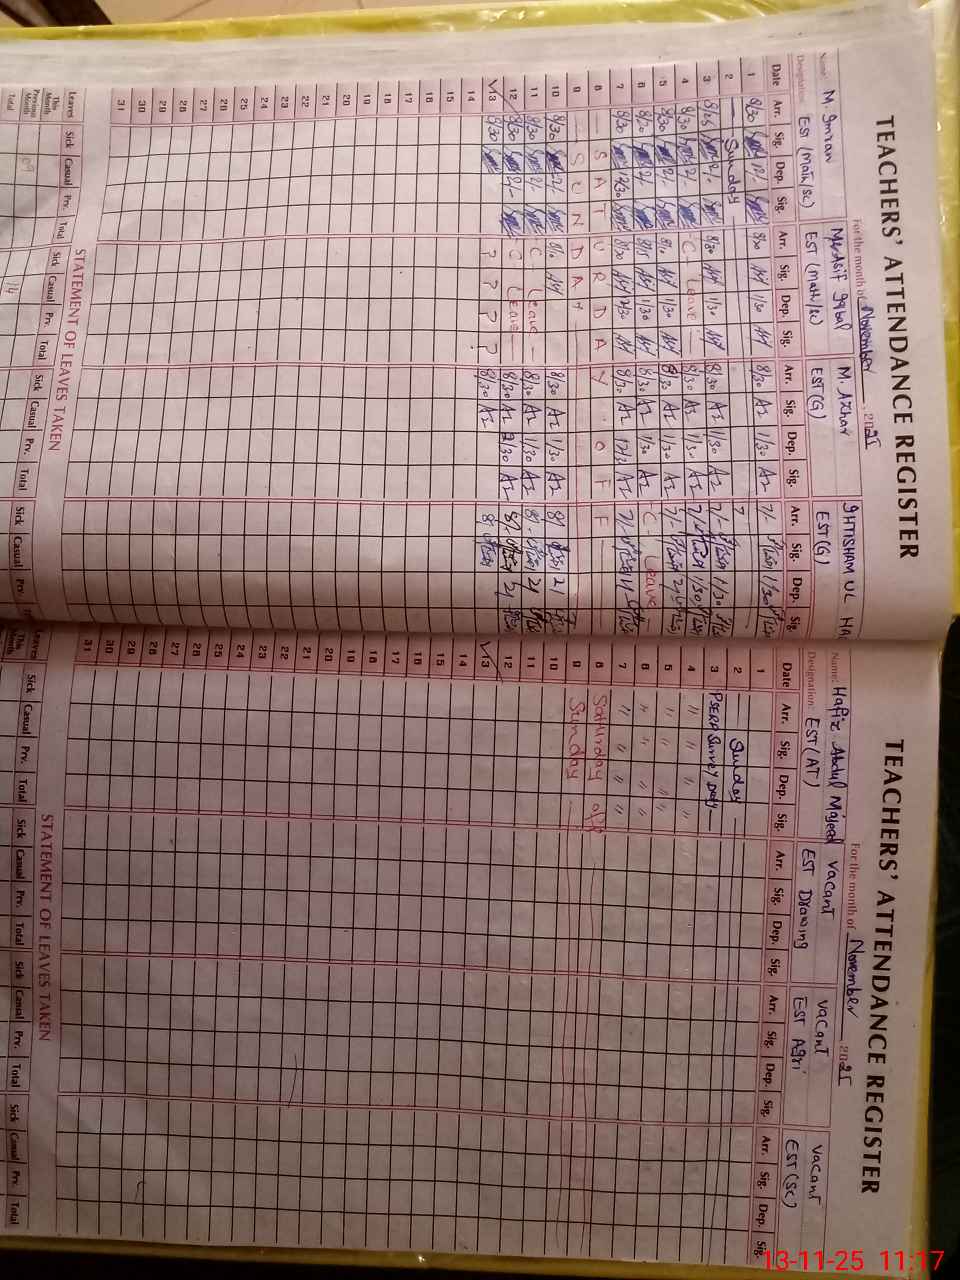 TEACHERS' ATTENDANCE REGISTER
For the month of November, 2025
Name: M. Imran M. Asif Iqbal M. Azhar IHTISHAM UL HA
Designation: EST (Math/Sc) EST (math/sc) EST(G) EST(G)
Date Arr. Sig. Dep. Sig. Arr. Sig. Dep. Sig. Arr. Sig. Dep. Sig. Arr. Sig. Dep. Sig.
1 8/30 2/- 8/30 1/30 8/30 AZ 1/30 AZ 7/- 1/30
2 — Sunday —
3 8/25 2/- 8/30 1/30 8/30 AZ 1/30 AZ 7/- 1/30
4 8/30 2/- C - Leave 8/30 AZ 1/30 AZ 1/30
5 8/30 2/- 1/30 8/30 AZ 1/30 AZ 7/-
6 8/30 2/- 8/15 1/30 8/30 AZ 1/30 AZ C - Leave
7 8/30 12/30 8/30 8/30 AZ AZ 7/-
8 — S A T U R D A Y O F F
9 S U N D A Y
10 8/30 2/- 8/30 AZ 1/30 AZ 8/ 2/
11 8/30 2/- C - Leave - 8/30 AZ 1/30 AZ 8/- 2/
12 8/30 2/- C Leave 8/30 AZ 2/30 AZ 8/- 2/
13 8/30 ? ? ? ? 8/30 AZ 8/
14
15
16
17
18
19
20
21
22
23
24
25
26
27
28
29
30
31
STATEMENT OF LEAVES TAKEN
Leaves Sick Casual Prv. Total Sick Casual Prv. Total Sick Casual Prv. Total Sick Casual Prv.
This Month
Previous Month 09 14
Total
TEACHERS' ATTENDANCE REGISTER
For the month of November 2025
Name: Hafiz Abdul Majeed Vacant Vacant Vacant
Designation: EST (AT) EST Drawing EST Agri EST (SC)
Date Arr. Sig. Dep. Sig. Arr. Sig. Dep. Sig. Arr. Sig. Dep. Sig. Arr. Sig. Dep. Sig.
1
2 — Sunday —
3 PSERP Survey Duty —
4 " " " "
5 " " " "
6 " " " "
7 " " " "
8 Saturday off
9 Sunday —
10
11
12
13
14
15
16
17
18
19
20
21
22
23
24
25
26
27
28
29
30
31
STATEMENT OF LEAVES TAKEN
Leaves Sick Casual Prv. Total Sick Casual Prv. Total Sick Casual Prv. Total Sick Casual Prv. Total
This Month
13-11-25 11:17